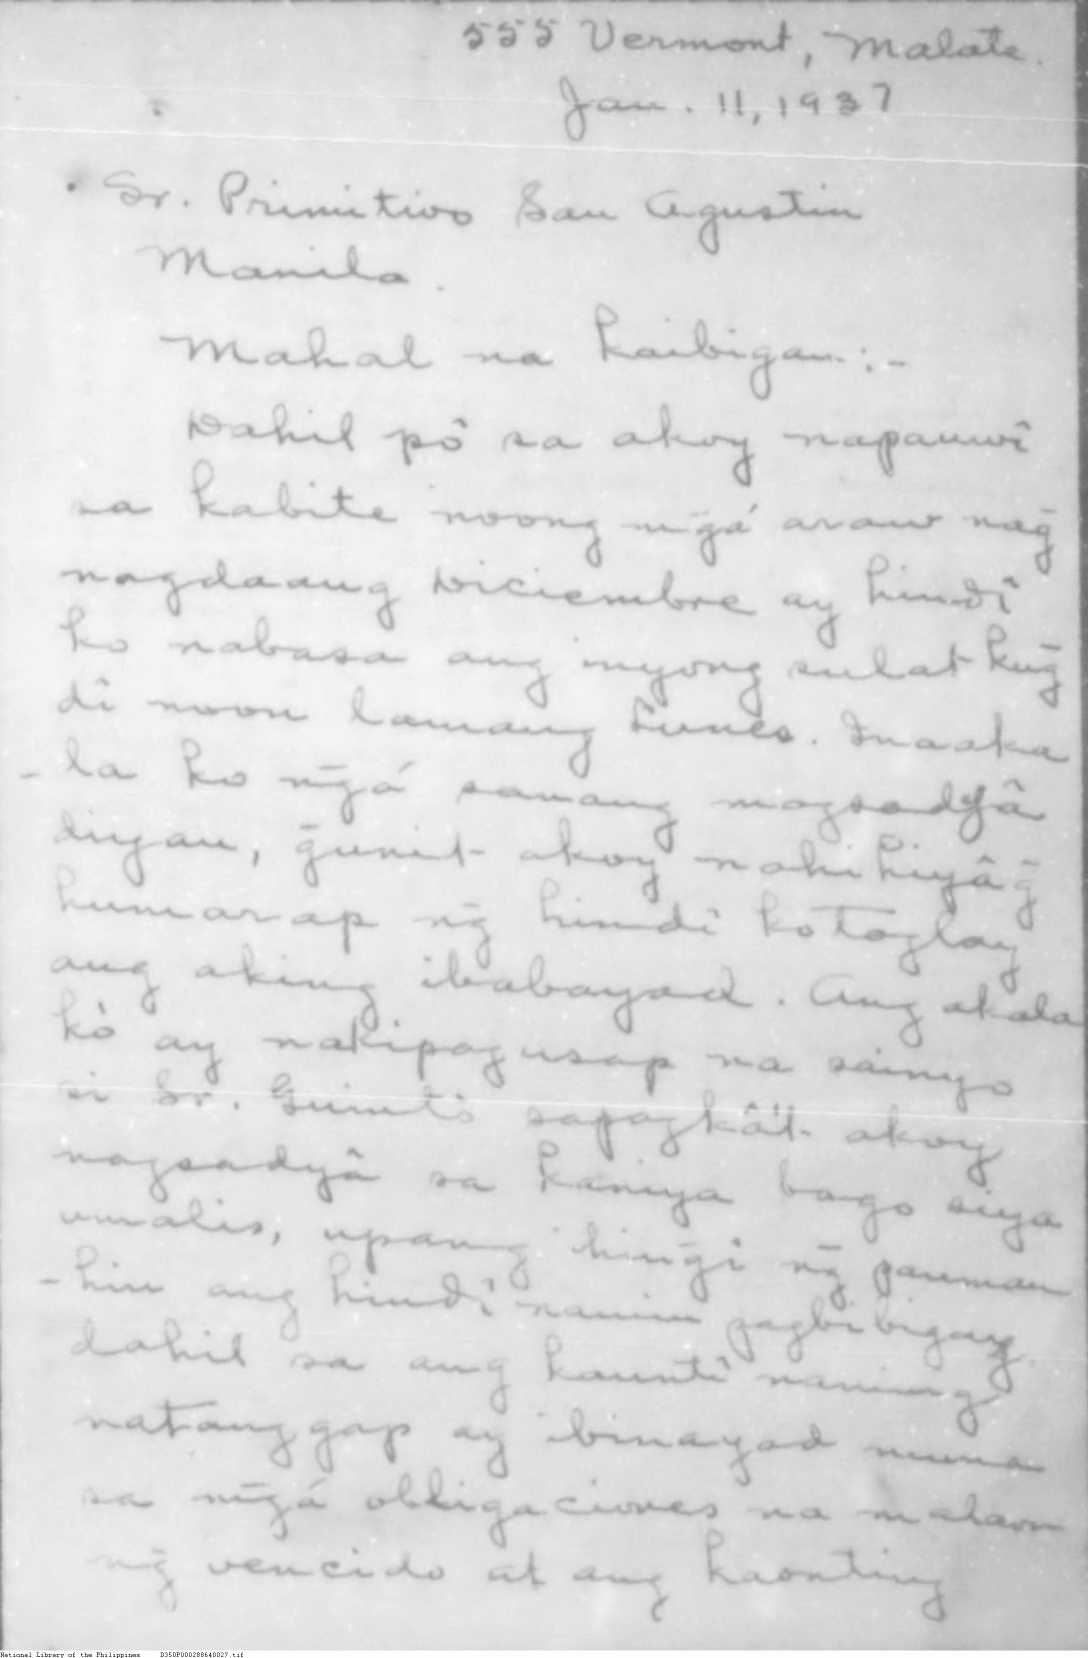 555 Vermont, Malate.
Jan. 11, 1937
Sr. Primitivo San Agustin
Manila.
Mahal na kaibigan:-
Dahil pô sa akoy napauwî
sa kabite noong m̃gá araw nag̃
nagdaang Diciembre ay hindî
ko nabasa ang inyong sulat kug̃
dî noon lamang Lunes. Inaaka
-la ko ng̃á sanang magsadyâ
diyan, g̃unit akoy nahihiyâg̃
humarap ng̃ hindî ko taglay
ang aking ibabayad. Ang akala
kô ay nakipagusap na sainyo
si Sr. sapagkâ't akoy
nagsadyâ sa kaniya bago siya
umalis, upang hing̃î ng̃ pauman
-hin ang hindî namin pagbibigay
dahil sa ang kauntî naming
natanggap ay ibinayad muna
sa mg̃á obligaciones na malaon
ng̃ vencido at ang kaonting
National Library of the Philippines D350P000288640027.tif